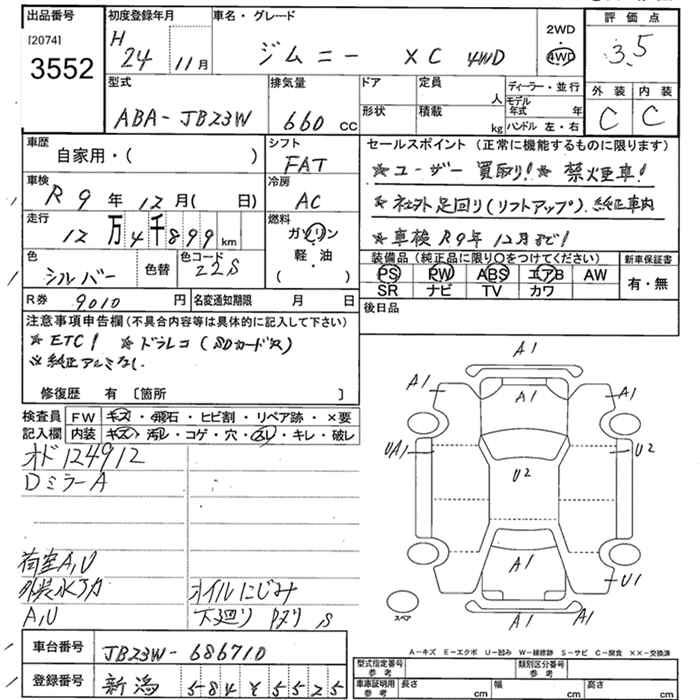 出品番号 初度登録年月 車名・グレード 2WD ・ 4WD 評価点
[2074] 3552 H 24 11月 ジムニー XC 4WD 3.5
型式 排気量 ドア 定員 人 ディーラー・並行 外装 内装
ABA-JB23W 660 CC 形状 積載 kg モデル年式 年 ハンドル 左・右 C C
車歴 自家用・( ) シフト FAT セールスポイント (正常に機能するものに限ります)
★ユーザー買取り!★禁煙車!
車検 R 9年 12月( 日) 冷房 AC
★社外足回り(リフトアップ).純正車内
走行 12万4千899km 燃料 ガソリン・軽油・( )
★車検R9年12月まで!
色 シルバー 色替 色コード Z2S
装備品(純正品に限り○をつけてください) 新車保証書
PS PW ABS エアB AW 有・無
SR ナビ TV カワ
R券 9010円 名変通知期限 月 日
後日品
注意事項申告欄(不具合内容等は具体的に記入して下さい)
★ETC! ★ドラレコ(SDカード欠)
※純正アルミなし.
修復歴 有 〔箇所 〕
検査員 FW キズ・飛石・ヒビ割・リペア跡・×要
記入欄 内装 キズ・汚レ・コゲ・穴・スレ・キレ・破レ
オド124912
DミラーA
荷室A,U
外装水アカ オイルにじみ
A,U 下廻りPヌリ S
A1
A1 A1 A1
UA1 U2
U2
A1 U1
A1 A1
スペア
A-キズ E-エクボ U-凹み W-補修跡 S-サビ C-腐食 ××-交換済
車台番号 JB23W-686710
型式指定番号 参考 類別区分番号 参考
登録番号 新潟 584 そ 5525
車庫証明用 参考 長さ cm 幅 cm 高さ cm